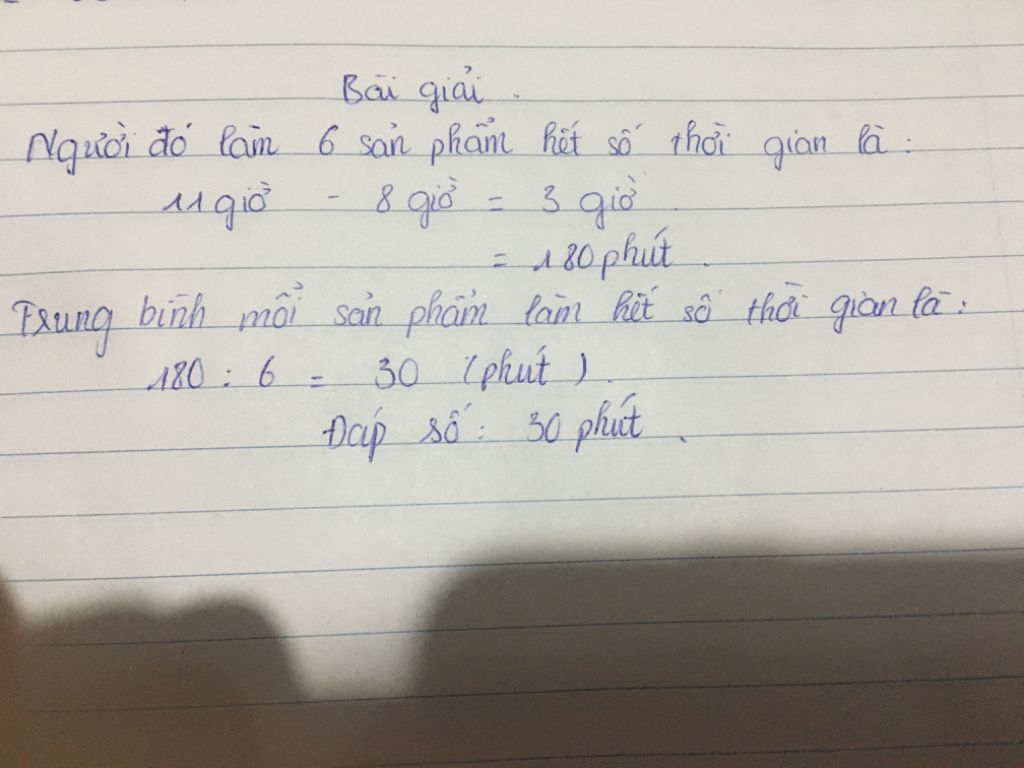 Bài giải.
Người đó làm 6 sản phẩm hết số thời gian là:
11 giờ - 8 giờ = 3 giờ.
= 180 phút.
Trung bình mỗi sản phẩm làm hết số thời gian là:
180 : 6 = 30 (phút).
Đáp số: 30 phút.